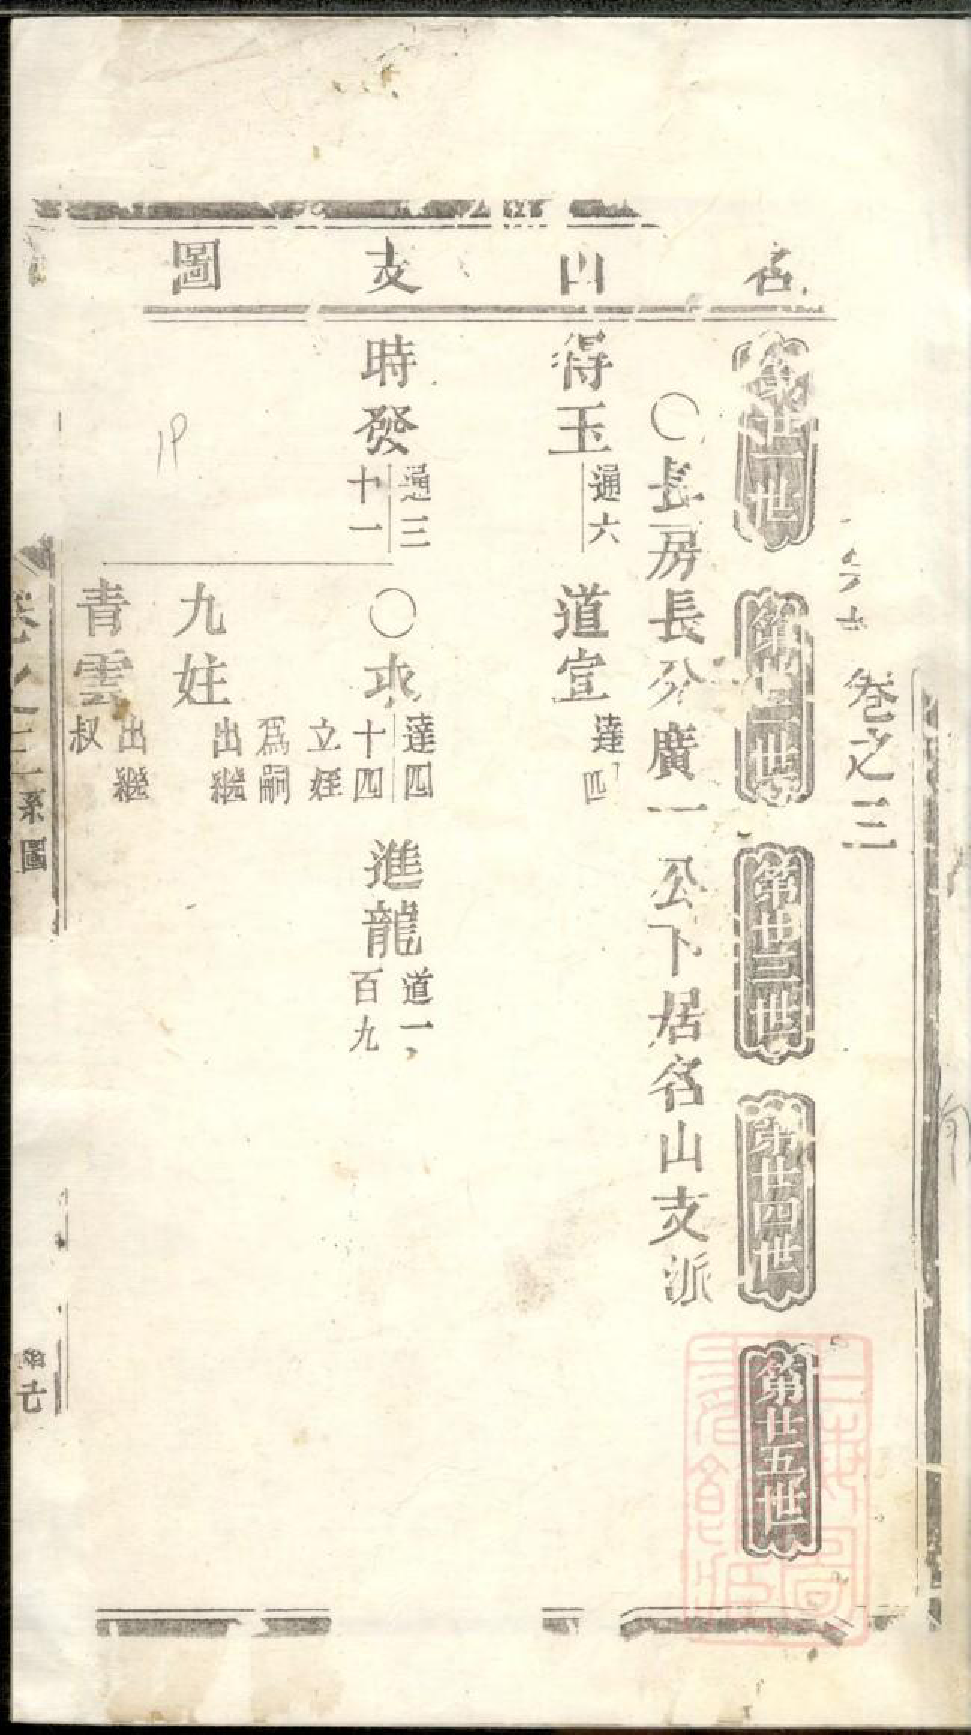 卷之三
名山支圖
第廿一世
第廿二世
第廿三世
第廿四世
第廿五世
○長房長分廣一公下居名山支派
得玉
通六
道宣
達四
時發
通三
十一
○
達四
十四
立姪
爲嗣
進龍
道一
百九
九妵
出繼
青雲
出繼
叔
卷之三
系圖